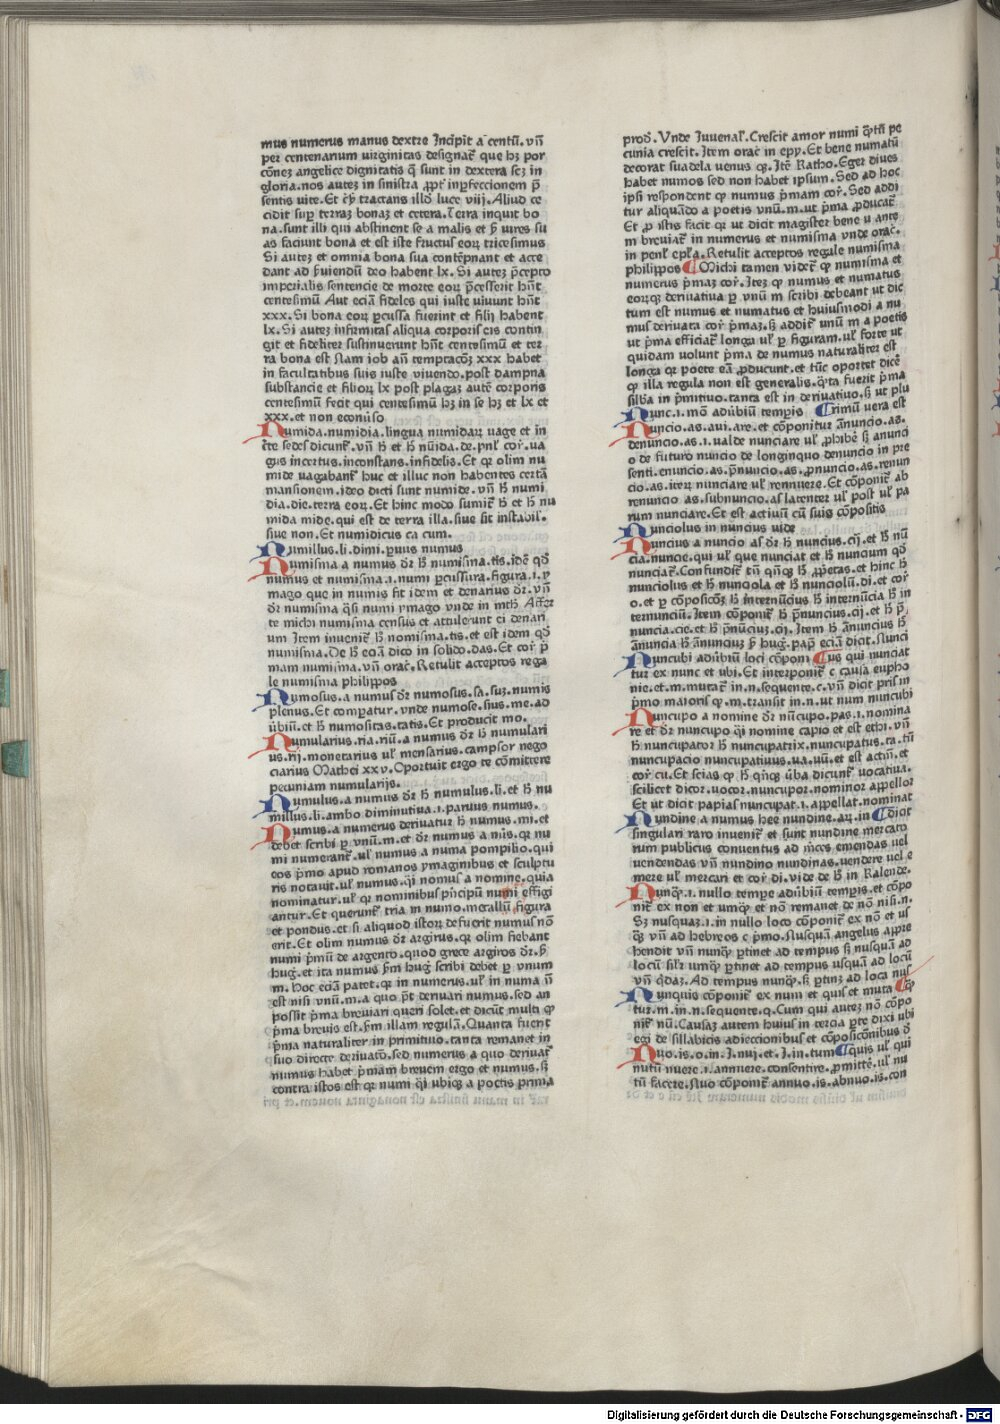 mus numerus manus dextre Incipit a centū. vn̄
per centenarium uirginitas designat᷑ que hꝫ por
cōneꝫ angelice dignitatis q̄ sunt in dextera seꝫ in
gloria. nos auteꝫ in sinistra ꝓpt᷑ inꝑfeccionem p̄
sentis uite. Et cr̄p tractans illď luce viij. Aliud ce
cidit suꝑ terraꝫ bonaꝫ et cetera. Terra inquit bo
na. sunt illi qui abstinent se a malis et p̄ vires su
as faciunt bona et est iste fructus eoꝝ tricesimus
Si auteꝫ et omnia bona sua contēpnant et acce
dant ad ẜuiendū deo habent lx. Si auteꝫ p̄cepto
imperialis sentencie de morte eoꝝ p̄cesserit hn̄t
centesimū Aut eciā fideles qui iuste uiuunt hn̄t
xxx. Si bona eoꝝ ꝑcussa fuerint et filij habent
lx. Si auteꝫ infirmitas aliqua corporis eis contin
git et fideliter sustinuerunt hn̄t centesimū et ter
ra bona est Nam iob an̄ temptacōꝫ xxx habet
in facultatibus suis iuste viuendo. post dampna
substancie et filioꝝ lx post plagaꝫ autē corporis
centesimū fecit qui centesimū hꝫ in se hꝫ et lx et
xxx. et non econuerso
Numida. numidia. lingua numidaꝝ uage et in
c̄te sedes dicunt᷑. vn̄ ħ et ħ nūida. de. pnl̕ cor̕. ua
gus incertus. inconstans. infidelis. Et qꝛ olim nu
mide uagabant᷑ huc et illuc non habentes certā
mansionem. ideo dicti sunt numide. vn̄ ħ numi
dia. die. terra eoꝝ. Et hinc modo sumit᷑ ħ et ħ nu
mida mide. qui est de terra illa. siue sit instabil̕.
siue non. Et numidicus ca cum.
Numillus. li. dimi. ꝑuus numus
Numisma a numus dr̄ ħ numisma. tis. idē qď
numus et numisma. i. numi ꝑcussura. figura. i. y
mago que in numis fit idem et denarius dr̄. vn̄
dr̄ numisma q̄si numi ymago vnde in mth̕ Affer
te michi numisma census et attulerunt ei denari
um Item inuenit᷑ ħ nomisma. tis. et est idem qď
numisma. De ħ eciā dico in solido. das. Et cor̕ p̄
mam numisma. vn̄ orac̕. Retulit acceptos rega
le numisma philippos
Numosus. a numus dr̄ numosus. sa. suꝫ. numis
plenus. Et comparat᷑. vnde numose. sius. me. ad
ūbiū. et ħ numositas. tatis. Et producit mo.
Numularius. ria. riū. a numus dr̄ ħ numulari
us. rij. monetarius ul̕ mensarius. campsor nego
ciarius Mathei xxv. Oportuit ergo te cōmittere
pecuniam numularijs.
Numulus. a numus dr̄ ħ numulus. li. et ħ nu
millus. li. ambo diminutiua. i. paruus numus.
Numus. a numerus deriuatur ħ numus. mi. et
debet scribi ꝑ vnū. m. et dr̄ numus a nūs. qꝛ nu
mi numerant᷑. ul̕ numus a numa pompilio. qui
eos p̄mo apud romanos ymaginibus et sculptu
ris notauit. ul̕ numus. q̄i nomus a nomine. quia
nominatur. ul̕ qꝛ nominibus pn̄cipū numi effigi
antur. Et querunt᷑ tria in numo. metallū. figura
et pondus. et si aliquod istoꝝ defuerit numus nō
erit. Et olim numus dr̄ argirus. qꝛ olim fiebant
numi p̄mū de argento. quod grece argiros dr̄. ẜm
hug. et ita numus ẜm hug̕ scribi debet ꝑ vnum
m. Hoc eciā patet. qꝛ in numerus. ul̕ in numa nō
est nisi vnū. m. a quo p̄t deriuari numus. sed an
possit p̄ma breuiari queri solet. et dicūt multi ꝙ
p̄ma breuis est. ẜm illam regulā. Quanta fuerit
p̄ma naturaliter in primitiuo. tanta remanet in
suo directe deriuato. sed numerus a quo deriuat᷑
numus habet p̄mam breuem ergo et numus. sꝫ
contra istos est qꝛ numi q̄i ubiqꝫ a poetis prima
proď. Vnde Juuenal̕. Crescit amor numi q̄tū pe
cunia crescit. Item orac̕ in epy. Et bene numatū
decorat suadela uenus qꝫ. Itē Ratho. Eger diues
habet numos sed non habet ipsum. Sed ad hoc
ipsi respondent ꝙ numus p̄mam cor̕. Sed addi
tur aliquādo a poetis vnū. m. ut p̄ma ꝓducat᷑
Et ꝓ istis facit qꝛ ut dicit magister bene u ante
m breuiat᷑ in numerus et numisma vnde orac̕.
in penl̕ epl̄a. Retulit acceptos regale numisma
philippos ¶ Michi tamen videt᷑ ꝙ numisma et
numerus p̄maꝫ cor̕. Iteꝫ ꝙ numus et numatus
eoꝝqꝫ deriuatiua ꝑ vnū m scribi debeant ut dic
tum est numus et numatus et huiusmodi a nu
mus deriuata cor̕ p̄maꝫ. sꝫ addit᷑ unū m a poetis
ut p̄ma efficiat᷑ longa ul̕ ꝑ figuram. ul̕ forte ut
quidam volunt p̄ma de numus naturaliter est
longa qꝛ poete eā ꝓducunt. et tūc oportet dicē
ꝙ illa regula non est generalis. q̄ta fuerit p̄ma
sillba in p̄mitiuo. tanta est in deriuatiuo. sꝫ ut plu
Nunc. i. mō adūbiū temp̄is ¶ rimū uera est
Nuncio. as. aui. are. et cōponitur ānuncio. as.
denuncio. as. i. ualde nunciare ul̕ ꝓhibē sꝫ anunci
o de futuro nuncio de longinquo denuncio in pre
senti. enuncio. as. p̄nuncio. as. ꝓnuncio. as. renun
cio. as. iteꝝ nunciare ul̕ rennuere. Et cōponit᷑ ab
renuncio as. subnuncio. as latenter ul̕ post ul̕ pa
rum nunciare. Et est actiuū cū suis cōpositis
Nunciolus in nuncius uide
Nuncius a nuncio as dr̄ ħ nuncius. cij. et ħ nū
cia. nuncie. qui ul̕ que nunciat et ħ nuncium qď
nunciat᷑. Confundit᷑ tn̄ qn̄qꝫ ħ ꝓprietas. et hinc ħ
nunciolus et ħ nunciola et ħ nunciolū. di. et cor̕
o. et ꝑ cōposicōꝫ ħ internūcius ħ internūcia ħ in
ternunciū. Item cōponit᷑ ħ pn̄uncius. cij. et ħ p̄
nuncia. cie. et ħ p̄nūciuꝫ. cij. Item ħ ānuncius ħ
ānuncia ħ ānunciuꝫ ẜ hug̕. pap̄ eciā dicit. Nunci
Nuncubi adūbiū loci cōponi ¶ us qui nunciat
tur ex nunc et ubi. Et interponit᷑ c causa eupho
nie. et. m. mutat᷑ in. n. sequente. c. vn̄ dicit pris̕ in
p̄mo maioris ꝙ. m. transit in. n. ut num nuncubi
Nuncupo a nomine dr̄ nūcupo. pas. i. nomina
re et dr̄ nuncupo q̄i nomine capio et est ethi. vn̄
ħ nuncupator ħ nuncupatrix. nuncupatus. ta. tū
nuncupacio nuncupatiuus. ua. uū. et est actiū. et
cor̕ cu. Et scias ꝙ ħ qn̄qꝫ ūba dicunt᷑ vocatiua.
scilicet dicor. uocor. nuncupor. nominor appellor
Et ut dicit papias nuncupat. i. appellat. nominat
Nundine a numus hee nundine. aꝝ. in ¶ dicit
singulari raro inuenit᷑ et sunt nundine mercato
rum publicus conuentus ad m̄ces emendas uel
uendendas vn̄ nundino nundinas. uendere uel e
mere ul̕ mercari et cor̕ di. vide de ħ in Kalende.
Nunqꝫ. i. nullo tempe adūbiū temp̄is. et cōpo
nit᷑ ex non et umqꝫ et nō remanet de nō nisi. n.
Sꝫ nusquaꝫ. i. in nullo loco cōponit᷑ ex nō et us
q̄ꝫ vn̄ ad hebreos c p̄mo. Nusquā angelus appre
hendit vn̄ nunqꝫ ꝑtinet ad tempus sꝫ nusquā ad
locū silr̄ umqꝫ ꝑtinet ad tempus usquā ad locū
vn̄ q̄daꝫ. Ad tempus nunqꝫ. sꝫ ꝑtinꝫ ad loca nus
Nunquis cōponit᷑ ex num et quis et muta ¶ qꝫ
tur. m. in. n. sequente. q. Cum qui auteꝫ nō cōpo
nit᷑ nū. Causaꝫ autem huius in tercia ꝑte dixi ubi
egi de sillabicis adieccionibus et cōposicōnibus ď
Nuo. is. o. in. J. nuj. et. J. in. tum ¶ quis ul̕ qui
nutū nuere. i. annuere. consentire. ꝑmittē. ul̕ nu
tū facere. Nuo cōponit᷑ annuo. is. abnuo. is. con
Digitalisierung gefördert durch die Deutsche Forschungsgemeinschaft - DFG